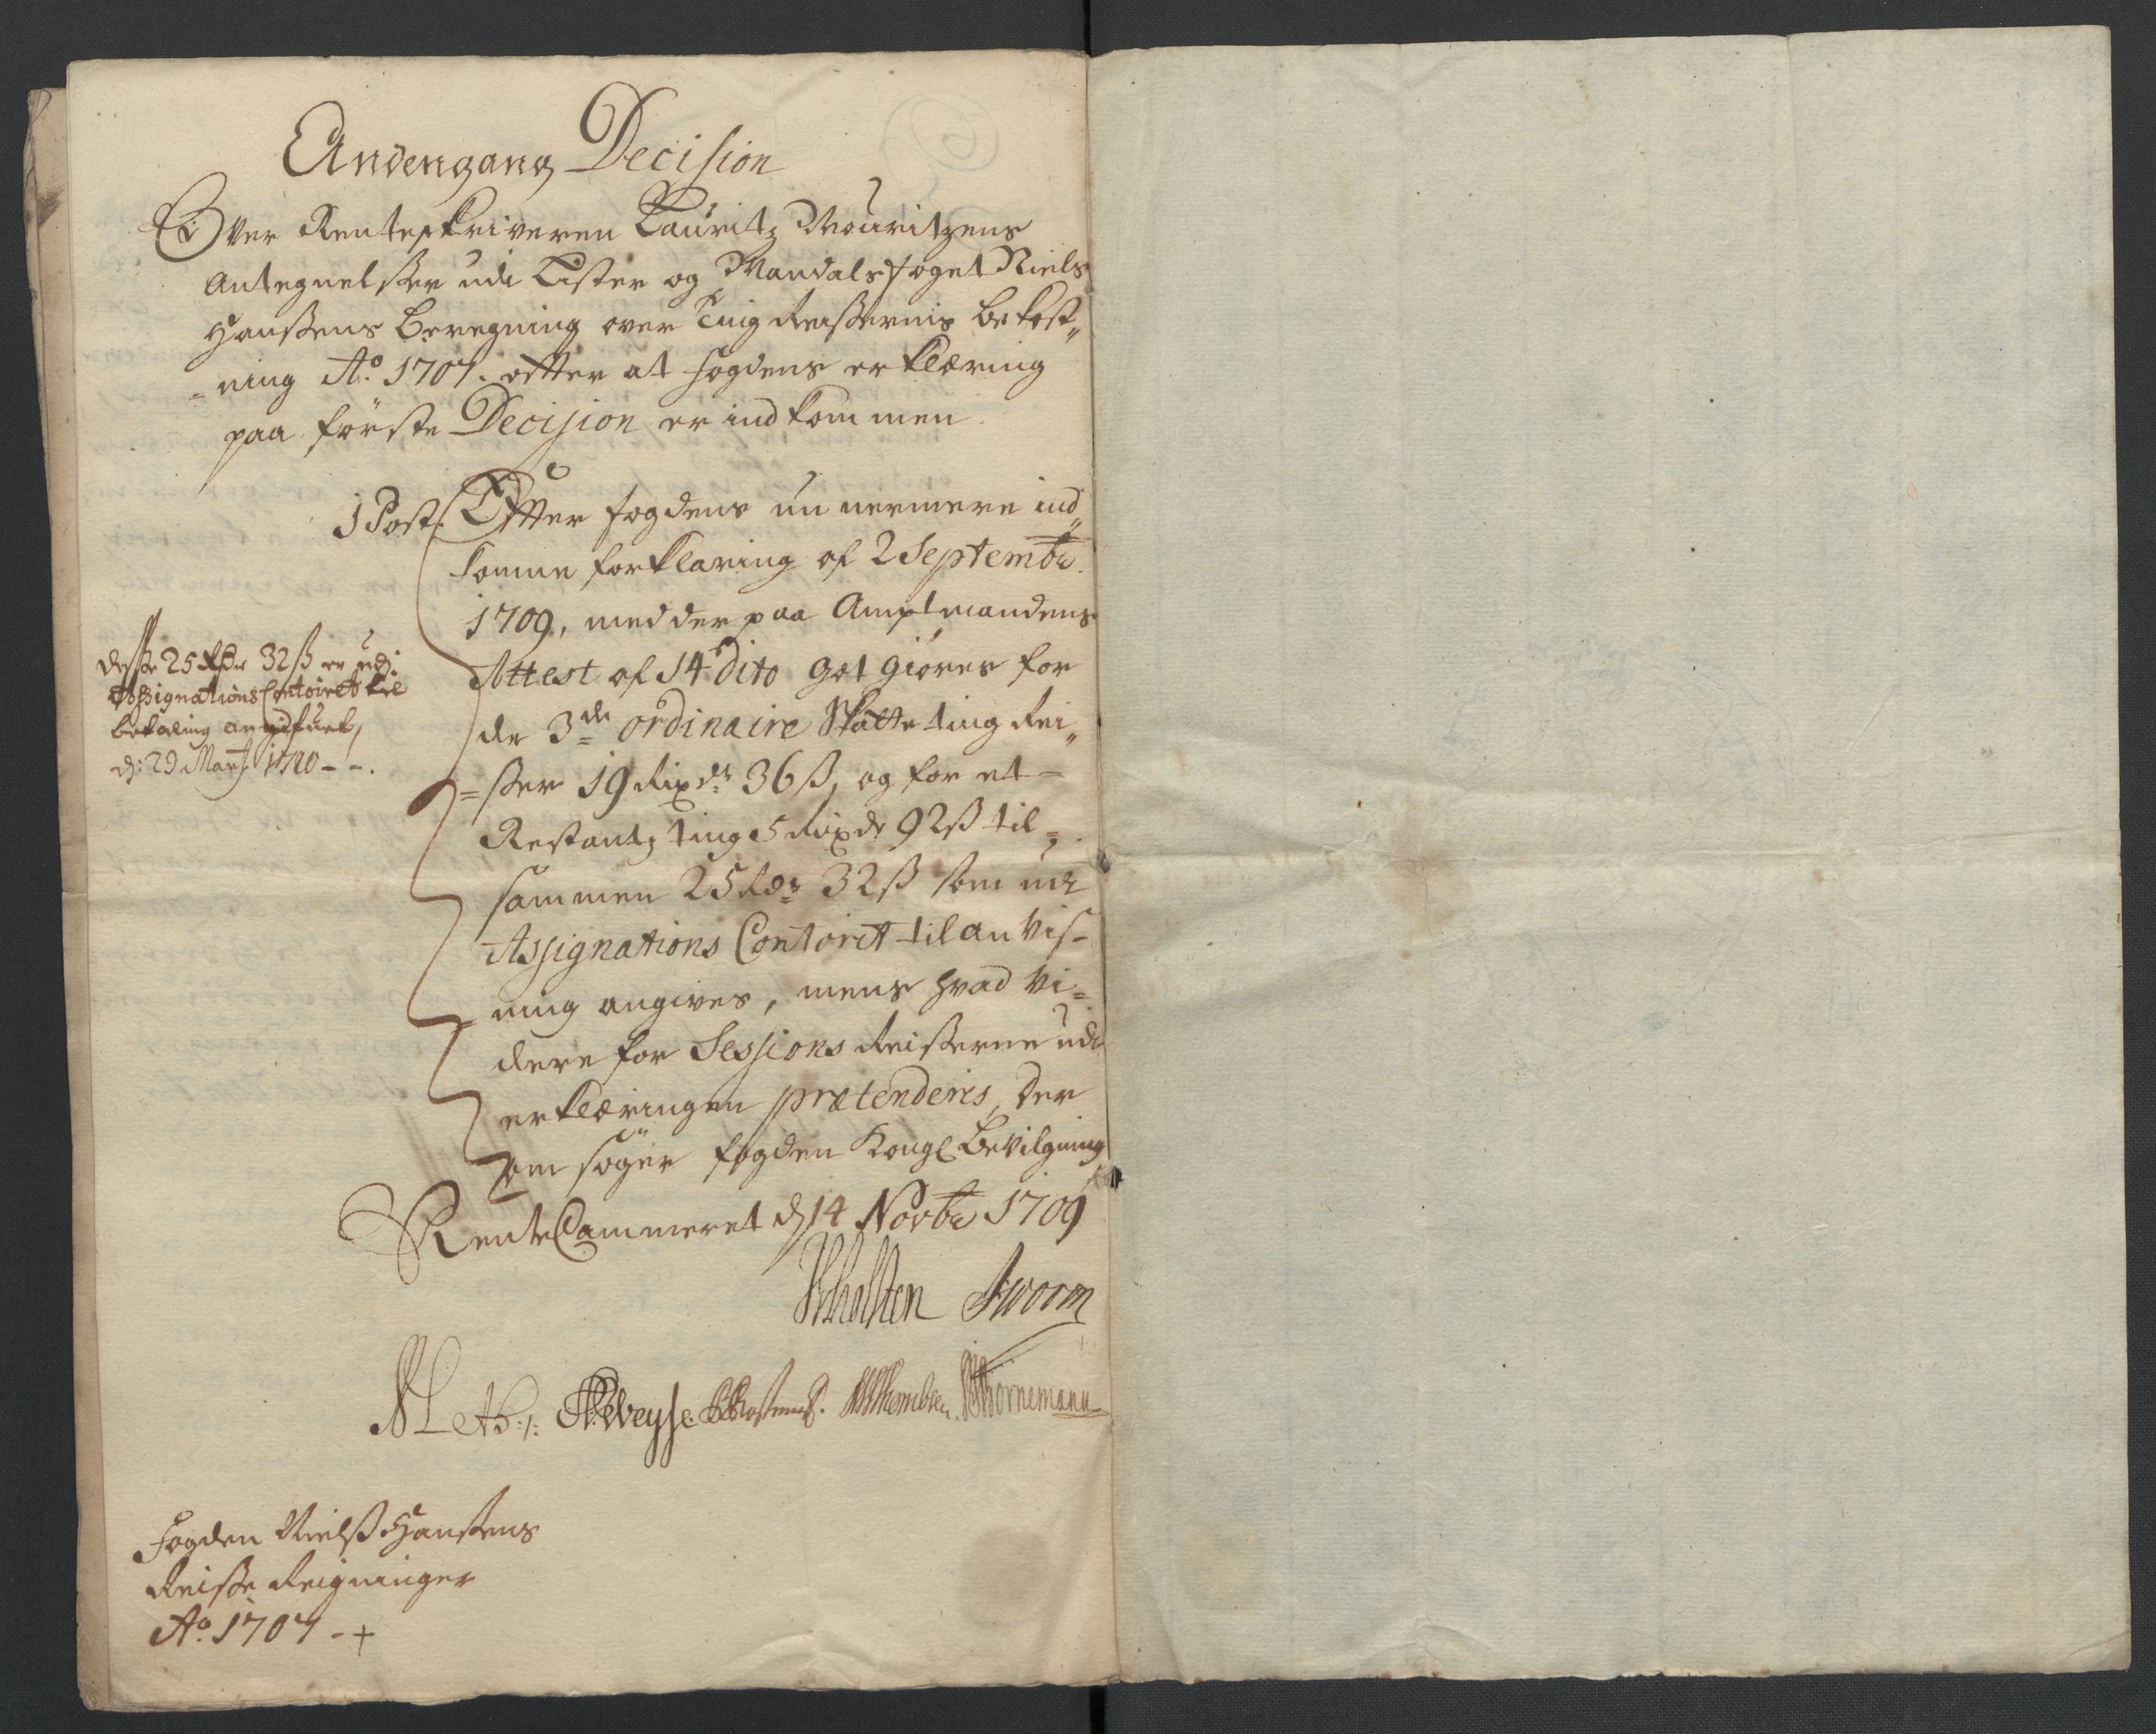 Andengang Decision
Over Renteskriveren Lauritz Mouritzens
Antegnelsser udi Lister og Mandals foget Niels
Hanssens Beregning over Ting Reissernis bekost„
ning Ao. 1707. effter at fogdens erklæring
paa förste Decision er indkommen.
1 Post. Effter fogdens nu nermere ind„
komne forklaring af 2 Septembr.
1709, med der paa Amptmandens
Attest af 14 dito got giöres for
de 3de ordinaire Skatte ting Rei„
=sser 19 Rixdr 36 ß, og for et=
Restantz ting 5 Rixdr 92 ß til=
sammen 25 Rdr 32 ß som udi
Assignations Contoret til anvis-
ning angives, mens hvad vi=
dere for Sessions Reisserne udi
erklæringen prætenderis, der
om söger fogden Kongl Bevilgning
Desse 25 Rdr 32 ß er udj
Assignations Contoiret til
betaling angifuet,
dj: 29 Marty 1710 - -.
Rente Cammeret dj 14 Novbr 1709
Worm
Fogden Nielß Hanssens
Reisse Reigninger
Ao. 1707 -